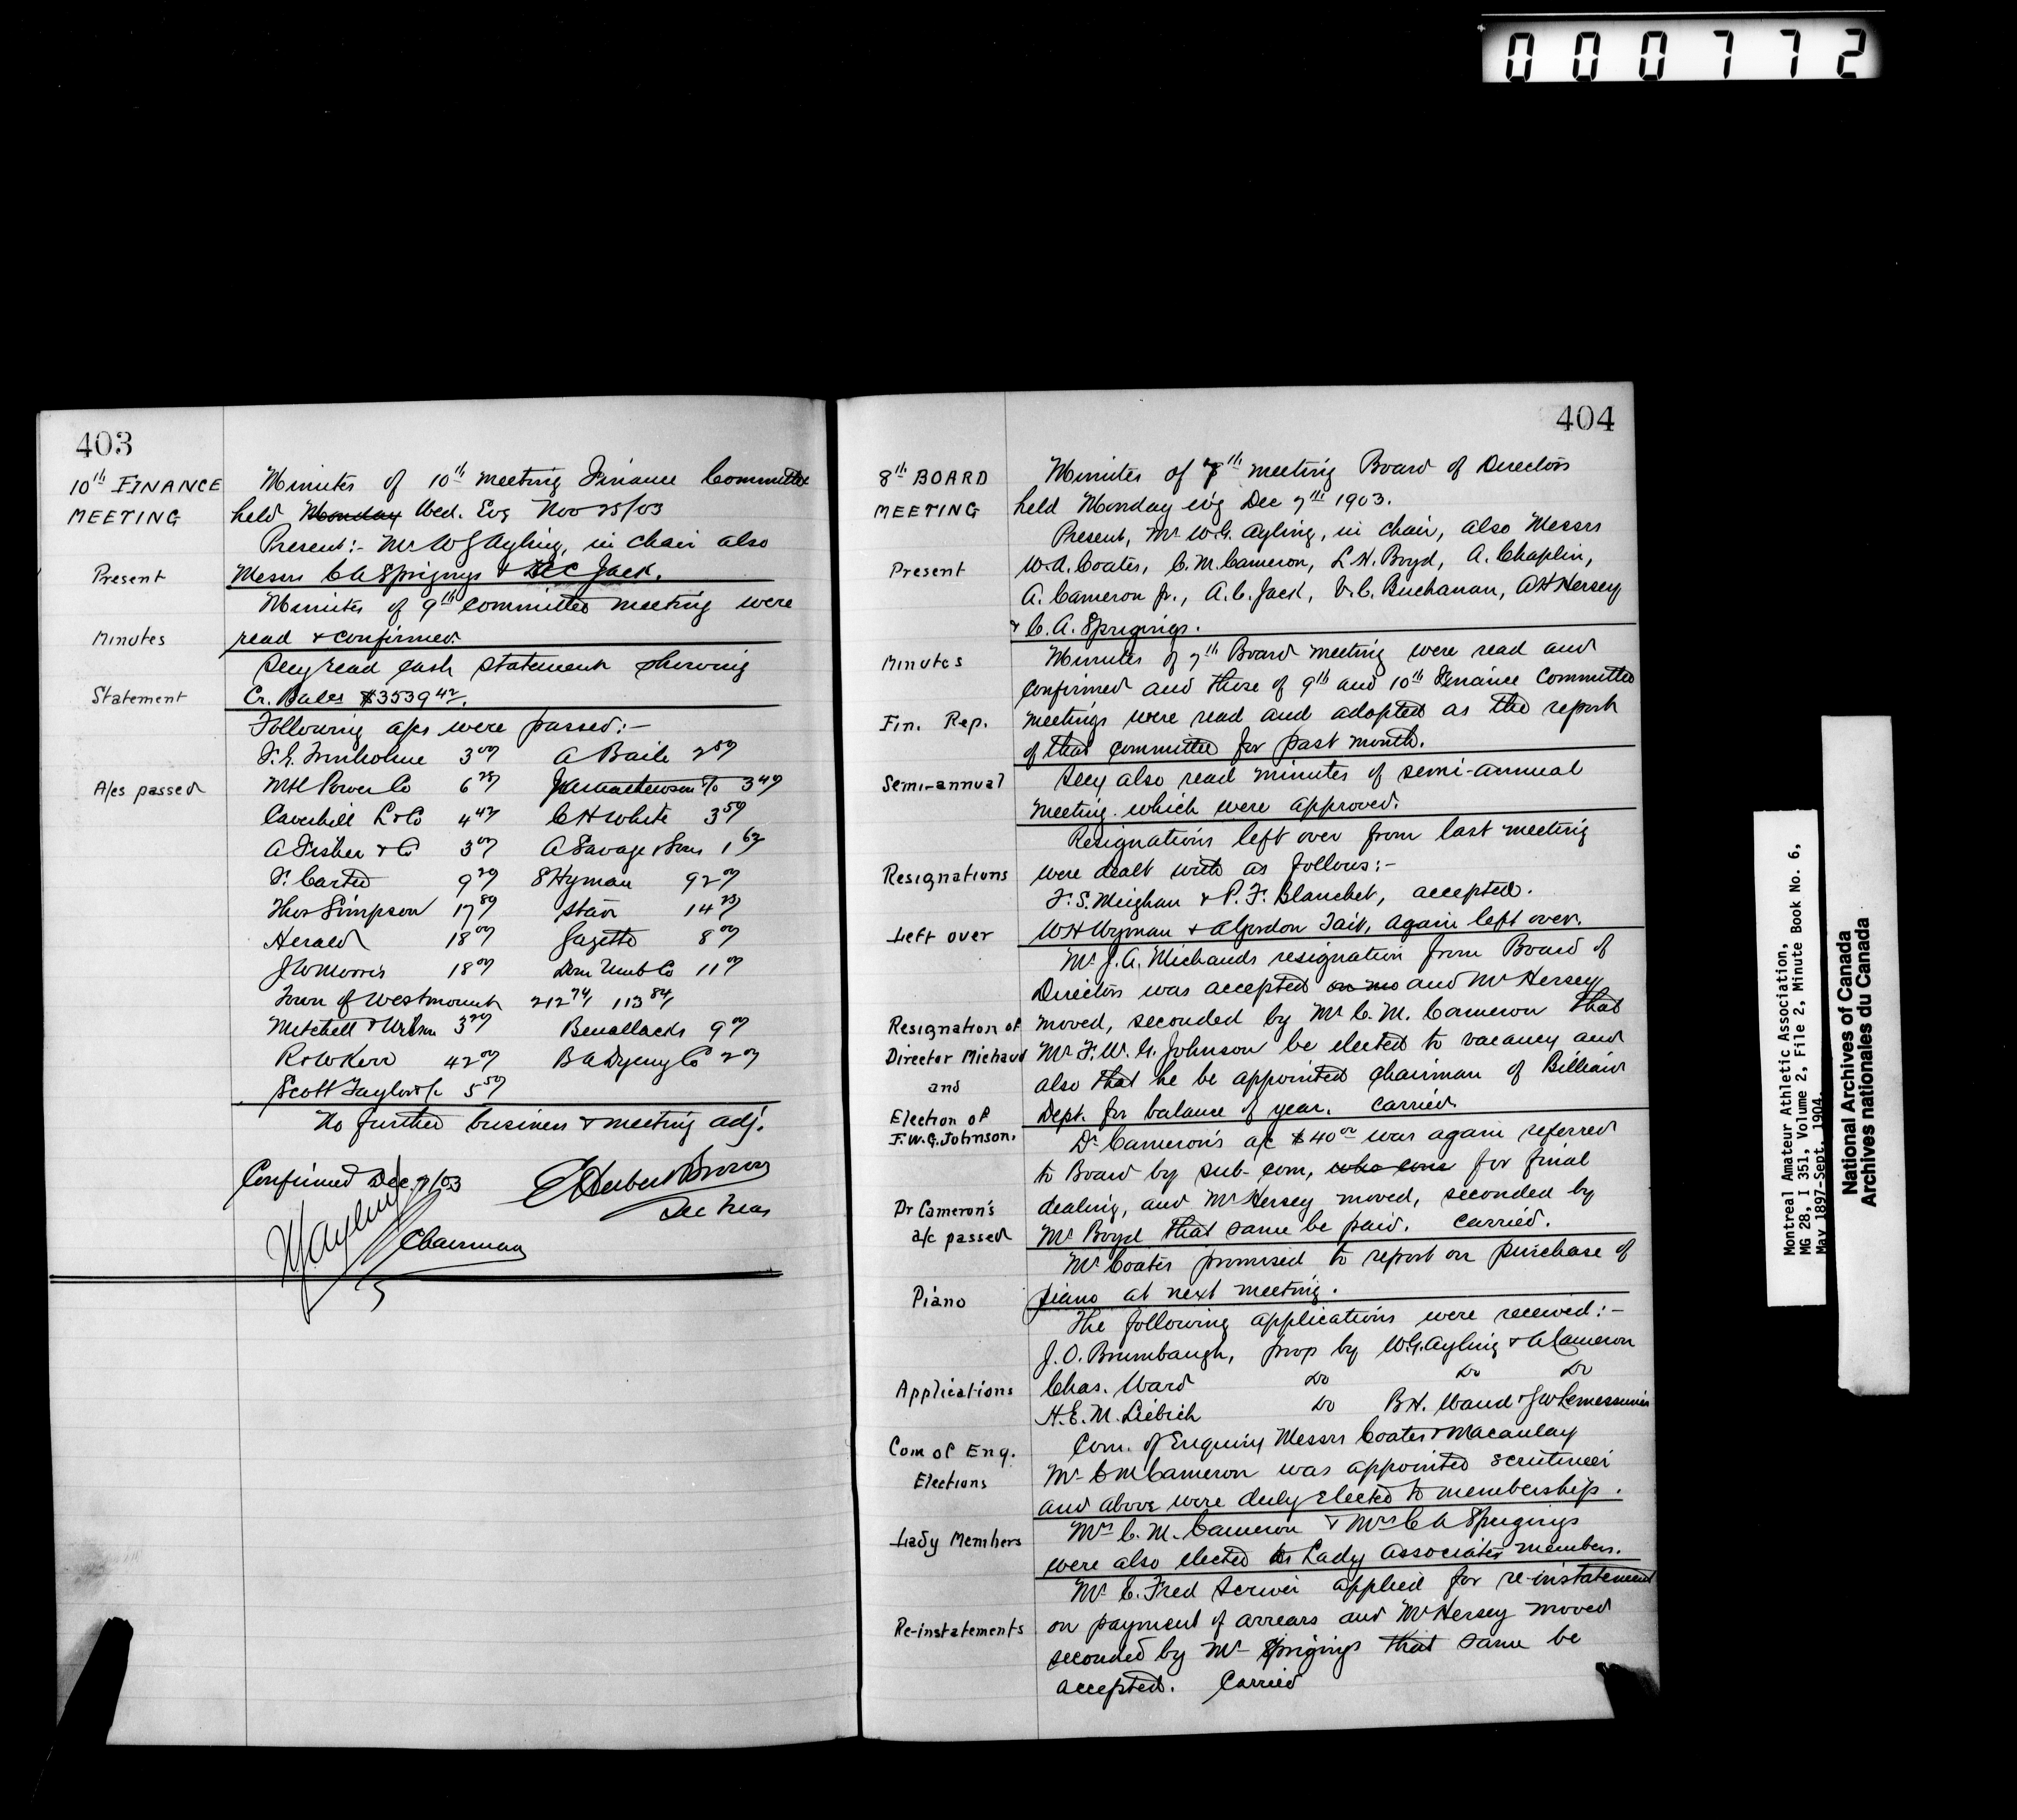 000772
403
10th FINANCE MEETING
Minutes of 10th meeting Finance Committee
held Monday Wed. Evg Nov 25/03
Present:- Mr W G Ayling, in chair also
Present
Messrs C A Sprigings & A C Jack.
Minutes of 9th Committee meeting were
Minutes
read & confirmed.
Secy read cash statement showing
Statement
Cr. Bales $3539 42.
Following a/cs were passed:-
3 00 A Baile 2 50
A/cs passed
MH Power Co 6 25 3 40
Caverhill L & Co 4 42 C H White 3 50
A Fisher & Co 3 00 A Savage & Sons 1 62
F. Carter 9 20 S Hyman 92 00
Thos Simpson 17 80 Star 14 25
Herald 18 00 Gazette 8 00
J W Morris 18 00 Dom Umb Co 11 00
Town of Westmount 212 74 113 84
Mitchell & Wilson 3 20 Benallacks 9 00
R & W Kerr 42 00 B A Dyeing Co 2 00
Scott Taylor & Co 5 50
No further business & meeting adj.
Confirmed Dec. 7/03
C Herbert Brown
Sec Treas
W G Ayling
Chairman
404
8th BOARD MEETING
Minutes of 8th meeting Board of Directors
held Monday evg Dec 7th 1903.
Present, Mr W.G. Ayling, in chair, also Messrs
Present
W.A. Coates, C.M. Cameron, L.H. Boyd, A. Chaplin,
A. Cameron Jr., A.C. Jack, V.C. Buchanan, A H Hersey
& C.A. Sprigings.
Minutes
Minutes of 7th Board meeting were read and
confirmed and those of 9th and 10th Finance Committee
Fin. Rep.
meetings were read and adopted as the report
of that committee for past month.
Semi-annual
Secy also read minutes of semi-annual
meeting which were approved.
Resignations left over from last meeting
Resignations
were dealt with as follows:-
F.S. Meighan & P.F. Blanchet, accepted.
Left over
W H Wyman & A Gordon Tait, again left over.
Mr J.A. Michauds resignation from Board of
Directors was accepted on mo and Mr Hersey
Resignation of
moved, seconded by Mr C.M. Cameron that
Director Michaud
Mr F.W.G. Johnson be elected to vacancy and
and
also that he be appointed chairman of Billiard
Election of
Dept. for balance of year. Carried.
F.W.G. Johnson.
Dr Cameron's a/c $40 00 was again referred
to Board by sub-com, who come for final
Dr Cameron's
dealing, and Mr Hersey moved, seconded by
a/c passed
Mr Boyd that same be paid. Carried.
Mr Coates promised to report on purchase of
Piano
piano at next meeting.
The following applications were received:-
J.O. Brumbaugh, prop by W.G. Ayling & A Cameron
Applications
Chas. Ward Do Do Do
H.E.M. Liebich Do B.H. Wand & J W Lemessurier
Com of Enq.
Com. of Enquiry Messrs Coates & Macaulay
Elections
Mr C M Cameron was appointed scrutineer
and above were duly elected to membership.
Lady Members
Mrs C.M. Cameron & Mrs C A Sprigings
were also elected as Lady Associate members.
Mr C. Fred applied for re-instatement
Re-instatements
on payment of arrears and Mr Hersey moved
seconded by Mr Sprigings that same be
accepted. Carried
Montreal Amateur Athletic Association,
MG 28, I 351, Volume 2, File 2, Minute Book No. 6,
May 1897-Sept. 1904.
National Archives of Canada
Archives nationales du Canada